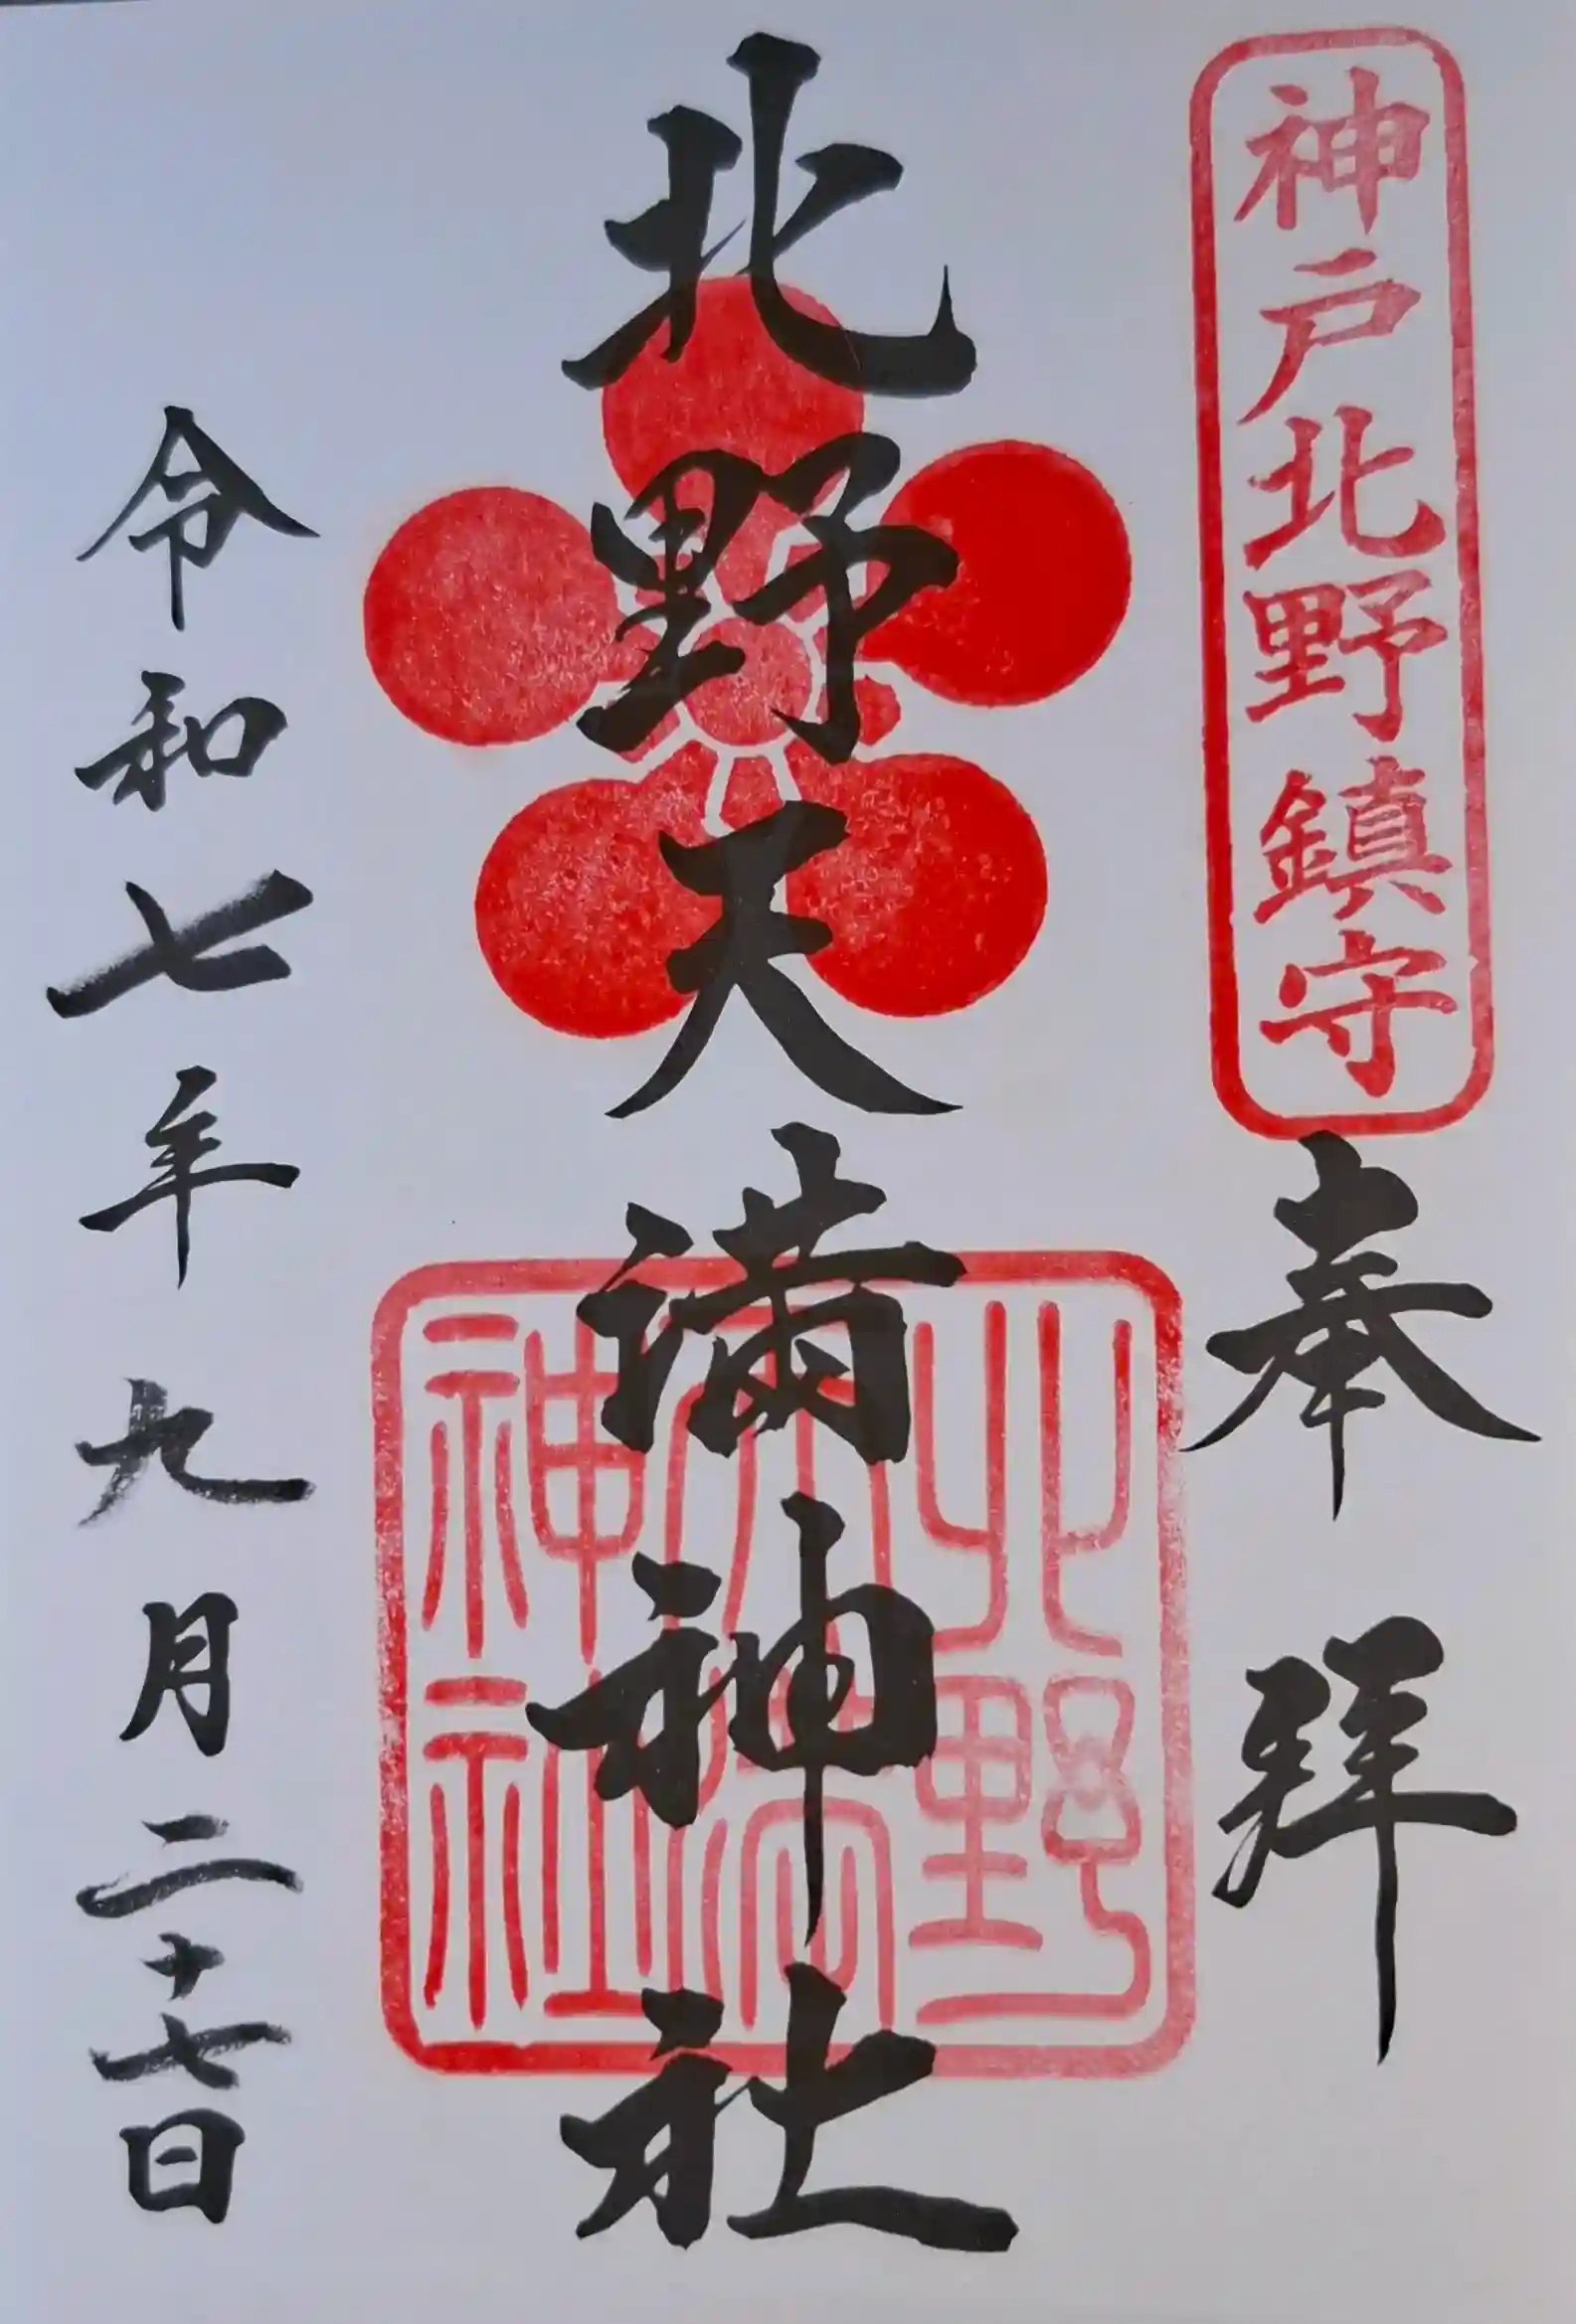 神戸北野鎮守
奉拝
北野天満神社
北野
天満
神社
令和七年九月二十七日